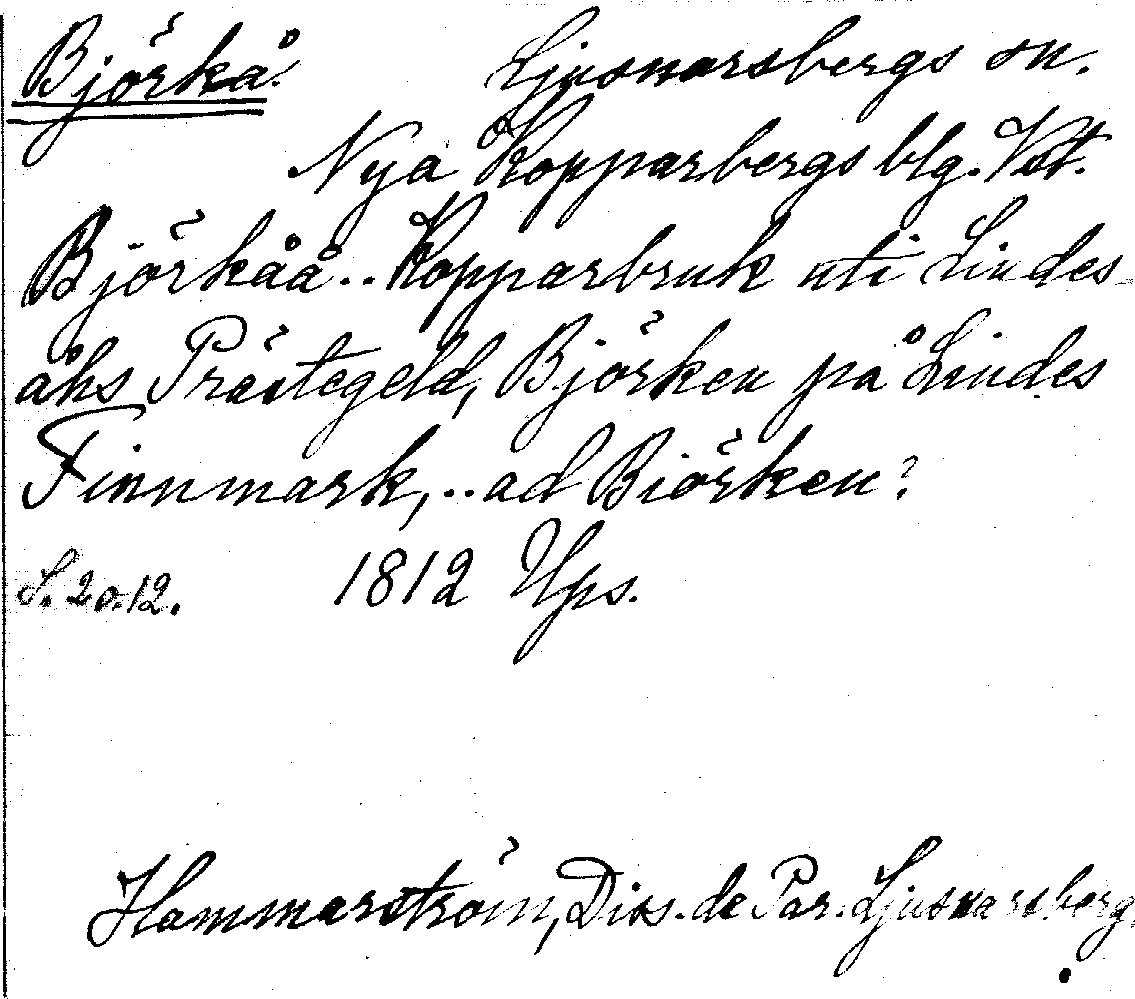 Björkå. Ljusnarsbergs sn.
Nya Kopparbergs blg. Vst.
Björkåå.. Kopparbruk uti Lindes-
åhs Prästegeld, Björken på Lindes
Finnmark, .. ad Biörken?
S. 20.12. 1812 Ups.
Hammarström, Diss. de Par. Ljusnarsberg.